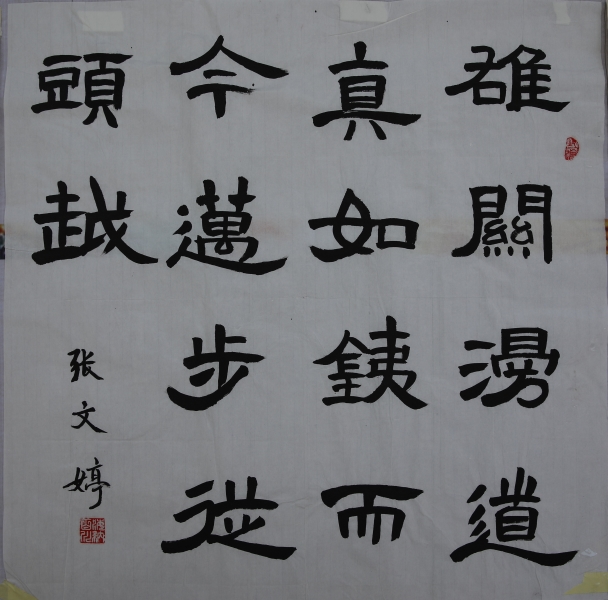 雄關漫道
真如銕而
今邁步從
頭越
张文婷